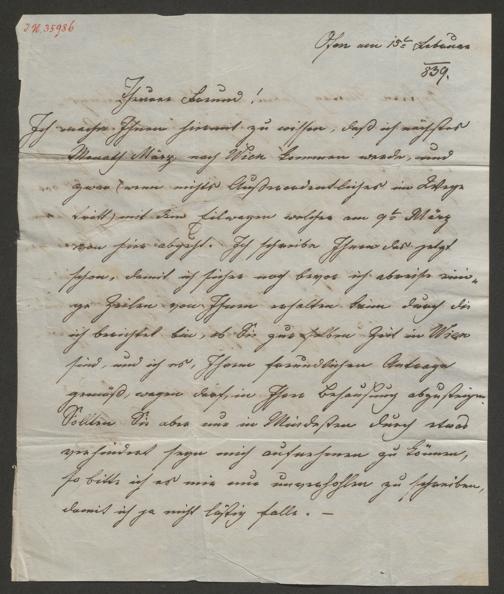 J.N. 35986
Ofen am 15t Februar
839.
Theurer Freund!
Ich mache Ihnen hiermit zu wissen, daß ich nächstes
Monath März nach Wien kommen werde, und
zwar (wenn nichts Außerordentliches im Wege
tritt) mit dem Eilwagen welcher am 9t März
von hier abgeht. Ich schreibe Ihnen das jetzt
schon, damit ich sicher noch bevor ich abreise eini-
ge Zeilen von Ihnen erhalten kann durch die
ich berichtet bin, ob Sie zur selben Zeit in Wien
sind, und ich es, Ihrem freundlichen Antrage
gemäß, wagen darf, in Ihrer Behausung abzusteigen.
Sollten Sie aber nur im Mindesten durch etwas
verhindert seyn mich aufnehmen zu können,
so bitte ich es mir nur unverhohlen zu schreiben,
damit ich ja nicht lästig falle. –